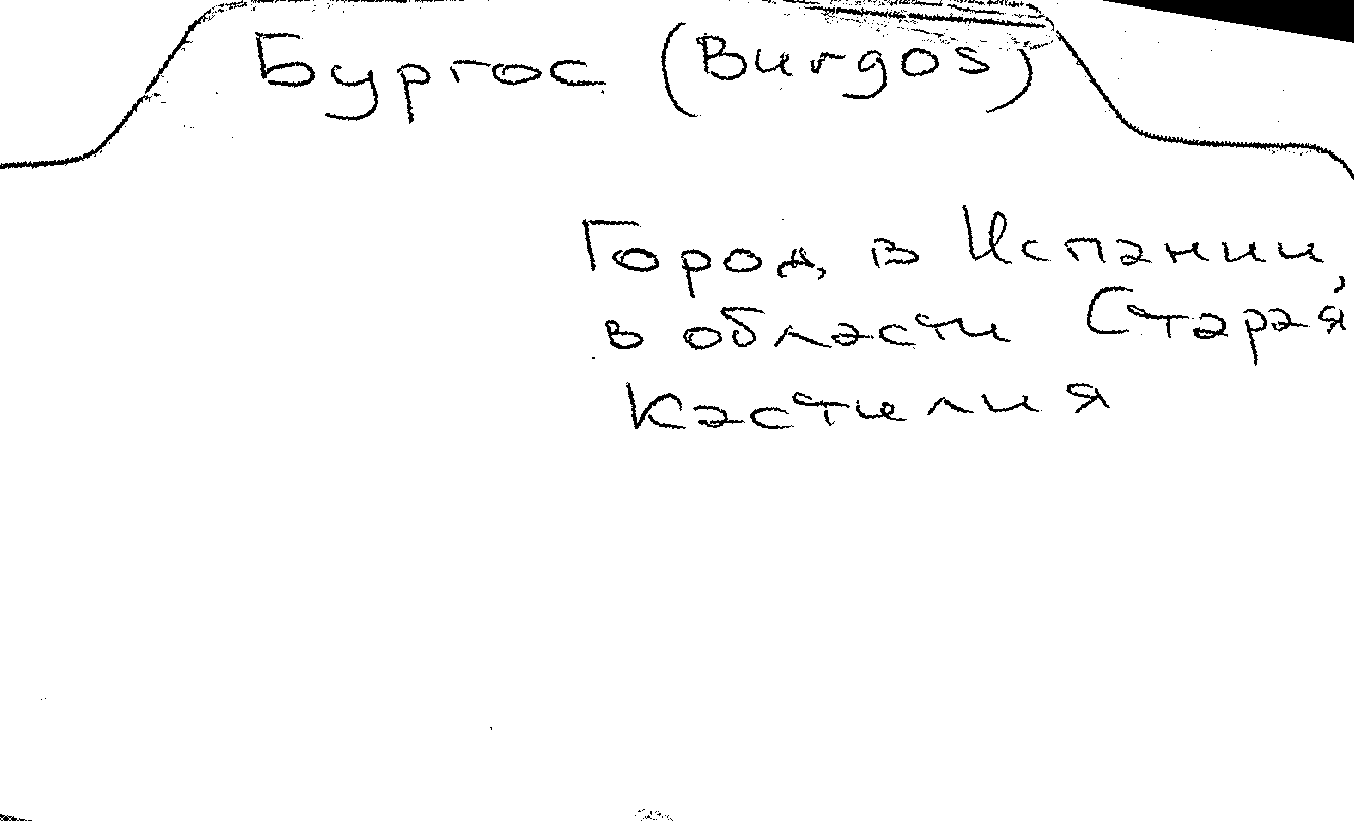 Бургос (Burgos)
Город в Испании,
в области Старая
Кастилия